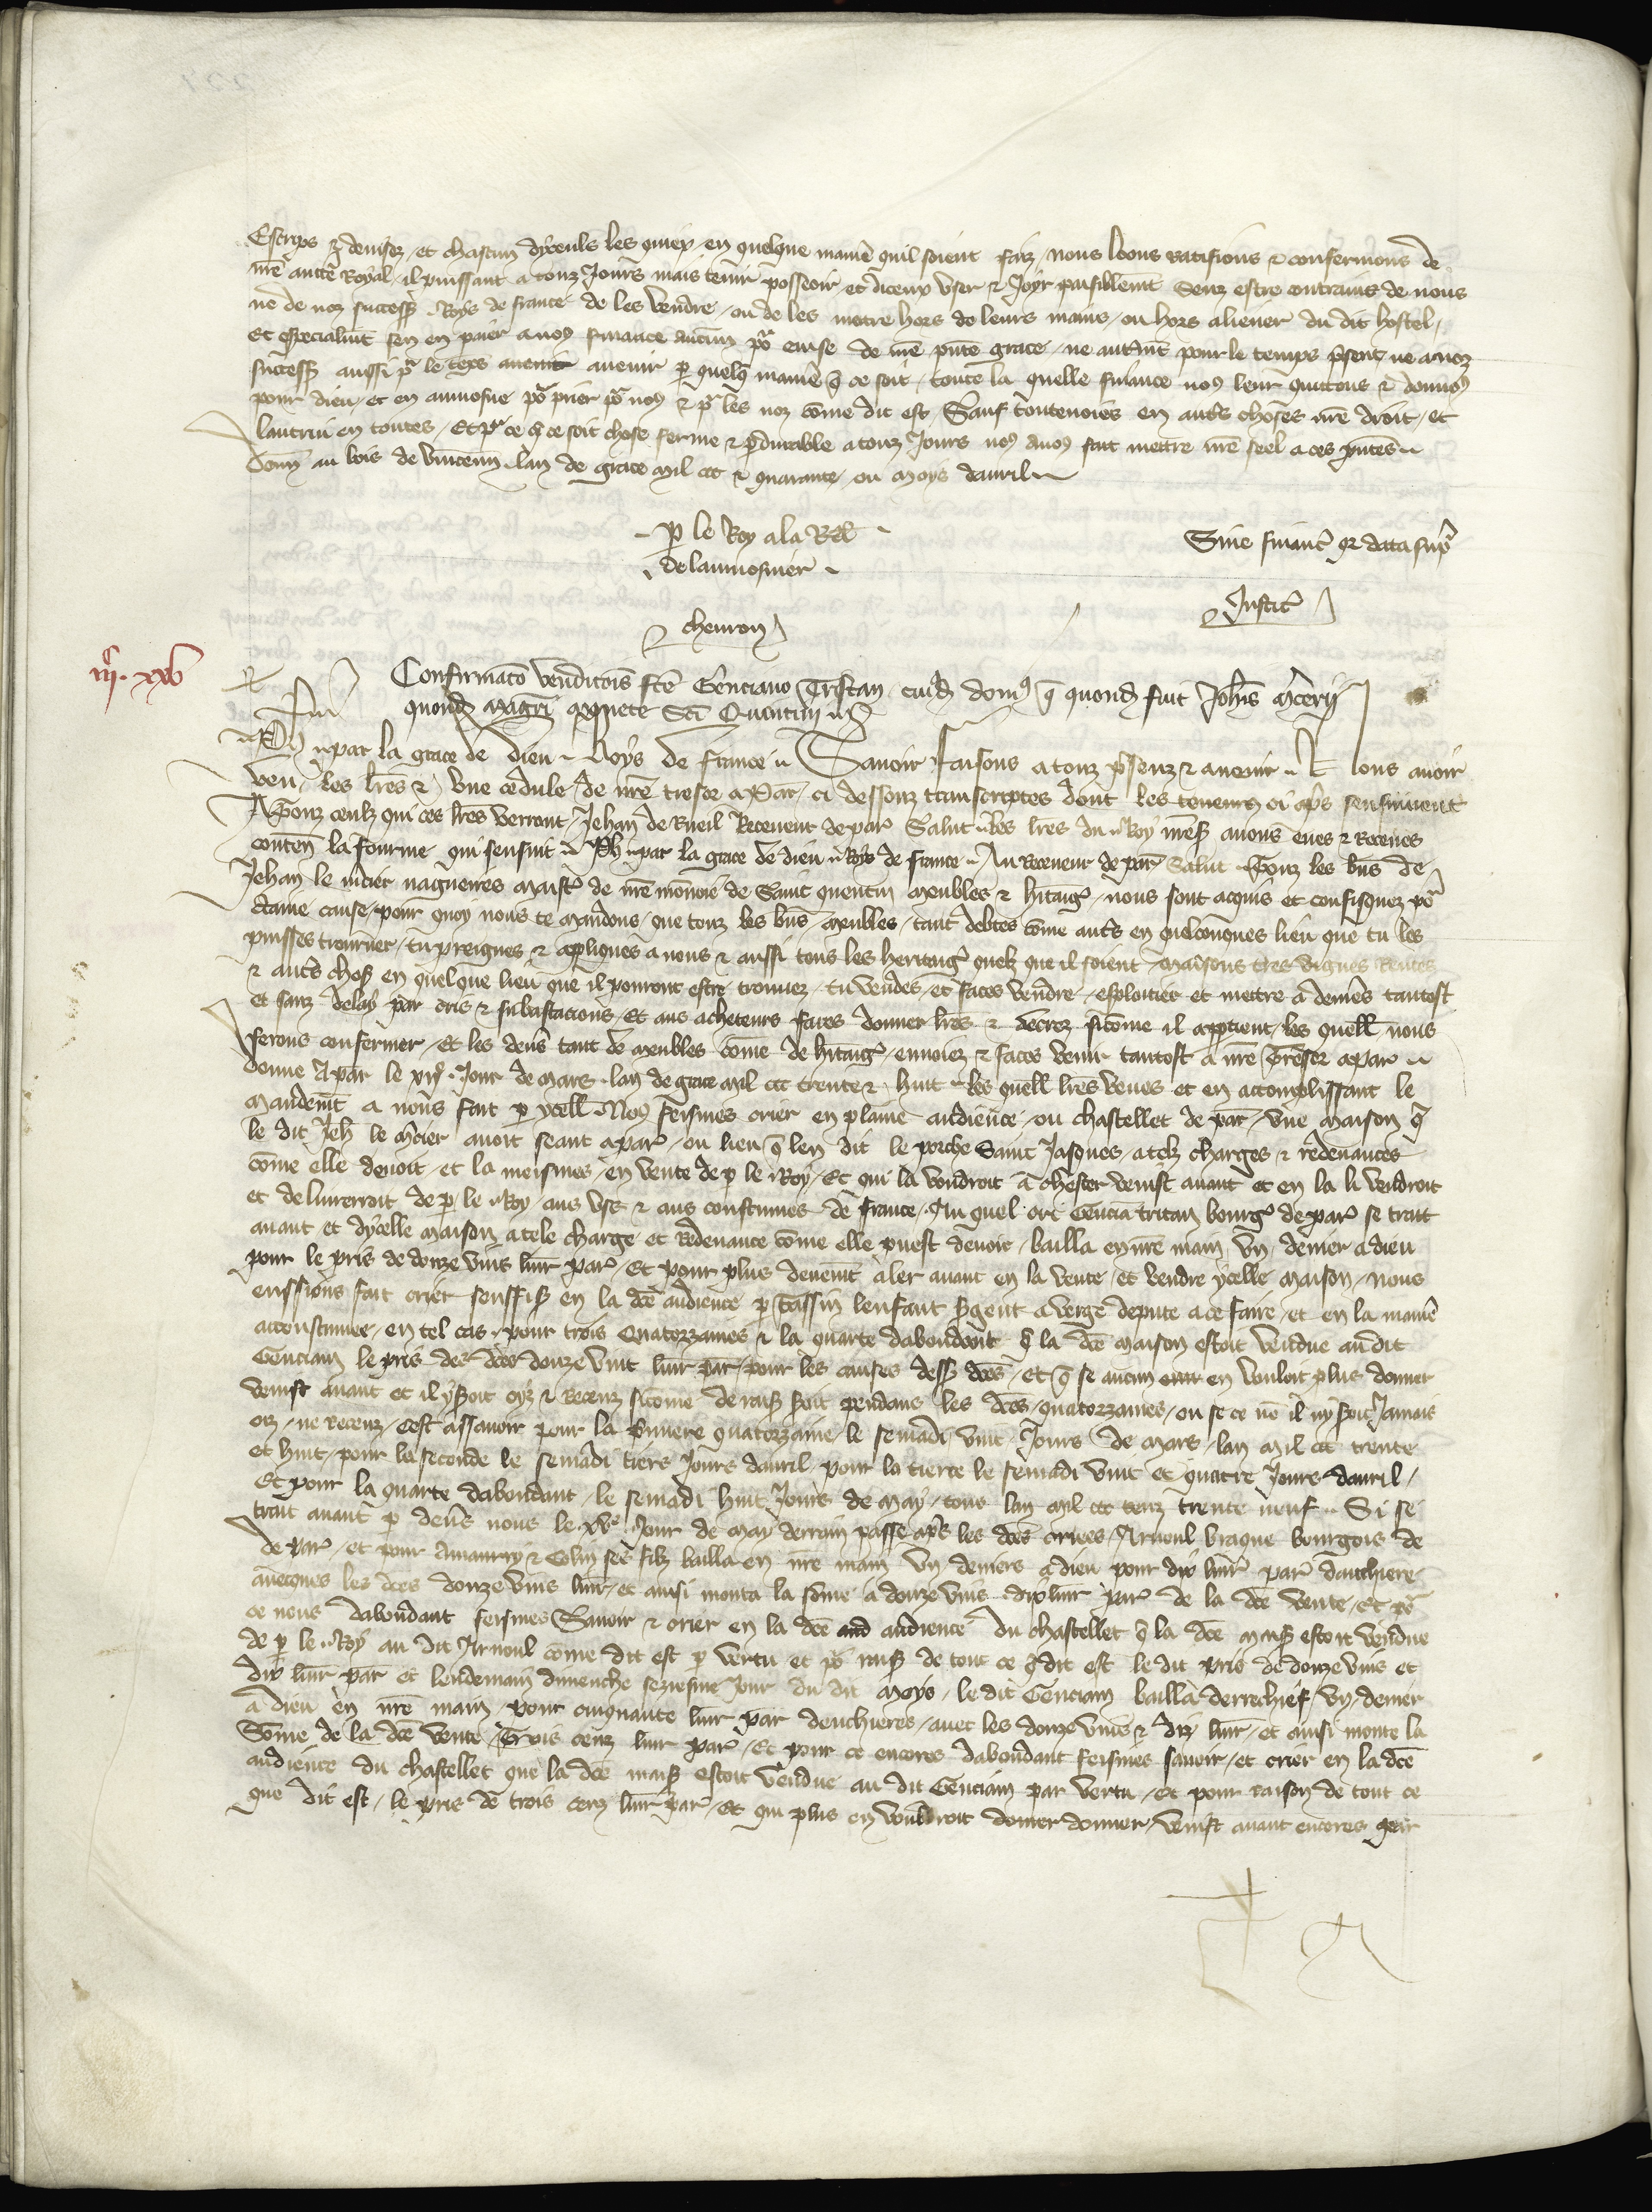 Escrips & devisez, et chascun dyceuls les quiex en quelque manie quil soient faiz, nous loons ratifions & confermons de
nre aucte Royal, il puissant a touz Jours mais tenir posseoir, et diceux user & Joyr paisiblemt Senz estre contrains de nous
ne de noz success Roys de france de les vendre, ou de les metre hors de leurs mains, ou hors aliener du dit hostel,
Et especialmt sen en paier a nous finance aucun por cause de nre pnte grace, ne autmt pour le temps psent, ne a noz
success aussi pr le teps avenir avenir p quelq manie q ce soit, toute la quelle finance nous leur quittons & donnos
pour dieu, et en aumosne por prier por nous & pr les noz come dit est Sauf toutevoies en autrs choses nre droit, et
lautrui en toutes, Et pr ce q ce soit chose ferme & pdurable a touz Jours nous avos fait mettre nre seel a ces pntes
Donn au bois de vincenn lan de grace mil ccc & quarante, ou moys davril
P le Roy a la Rel
de laumosnier
Sine financ qr data supr
Justic
chevron
iiic. xxv
Confirmaco vendicois fce Genciano Tristan, cuid domus q quond fuit Johis mcerii
quond magri monete Sci Quintini
Ph par la grace de dieu Roys de france Savoir faisons a touz psenz & avenir Nous avoir
veu les lres & une cedule de nre tresor a Par, ci dessouz transcriptes dont les teneurs ci aps sensuivent
A Touz ceulz qui ces lres verront Jehan de Rueil Receveur de par Salut les lres du Roy nres avons eues & Receues
conten la fourme qui sensuit Ph par la grace de dieu Roys de france Au Receveur de par Salut Touz les bns de
Jehan le mcier nagueires maistr de nre monoie de Saint quentin meubles & hitaigs, nous sont acquis et confisquez por
ctaine cause, pour quoy nous te mandons, que touz les bns meubles, tant debtes come autrs en quelconques lieu que tu les
puisses trouver, tu preignes & appliques a nous & aussi tous les heritaigs quelz que il soient, maisons tres vignes Rentes
& autrs chos en quelque lieu que il pouront estre trouvez, tu vendes, et faces vendre, esploitier et mettre a deniers tantost
et sanz delay par cris & subastacions, Et aus acheteurs faces donner lres & decrez sicome il apptient, les quell nous
ferons confermer, Et les deniers tant de meubles come de hitaigs, envoiez & faces venir tantost a nre Tresor a Par
donne a par le xiiie Jour de mars lan de grace mil ccc trente & huit, les quell lres veues et en accomplissant le
mandemt a nous fait p ycell Nous feismes crier en plaine audience ou chastellet de par, une maison q
le dit Jeh le mcier avoit seant a par, ou lieu q len dit le porche Saint Jasques, a telz charges & redevances
come elle devoit, et la meismes en vente de p le Roy, Et qui la voudroit achester venist avant et en la li vendroit
et deliverroit de p le Roy aus us & aus coustumes de france, Au quel cri Gencia tritan bourgs de par se trait
avant et dycelle maison a tele charge et Redevance come elle puest devoir, bailla en nre main un denier a dieu
pour le pris de douze vins livr par, Et pour plus deuemt aler avant en la vente, et vendre ycelle maison, nous
eussions fait crier souffis en la dce audience p Tassin lenfant sgent a verge depute a ce faire, et en la manie
accoustumee, en tel cas, pour trois Quatorzaines & la quarte dabondant q la dce maison estoit vendue au dit
Gencian le pris des dces douze vint livr par, pour les causes dess dces, et q se aucun en vouloit plus donner
venist avant et il yseroit oyz & receuz sicome de rais seroit pendans les dces quatorzaines, ou se ce no il nyseroit Jamais
oiz, ne receuz, cest assavoir pour la pmiere quatorzaine, le semadi vint Jours de mars, lan mil ccc trente
et huit, pour la seconde le semadi tiers Jours davril, pour la tierce le semadi vint et quatre Jours davril,
Et pour la quarte dabondant, le semadi huit Jours de may, tous lan mil ccc trente neuf Si se
trait avant p devs nous le xve Jour de may derrain passe aps les dces criees Arnoul braque bourgois de
de par, et pour Amaurry & Colin ses filz bailla en nre main un deniers a dieu pour dix livr par danchiere
avecques les dces douze vins livr, et ainsi monta la some a douze vins dix livr par de la dce vente, Et por
ce nous dabondant feismes Savoir & crier en la dce aud audience du chastellet q la dce mais estoit vendue
de p le Roy au dit Arnoul come dit est p vertu et por rais de tout ce q dit est le dit pris de douze vins et
dix livr par et lendemain dimenche seziesme Jour du dit moys, le dit Gencian bailla derrechief un denier
a dieu en nre main, pour cinquante livr par denchieres, avec les douze vins & diz livr, et ainsi monte la
some de la dce vente Trois cenz livr par, Et pour ce encores dabondant feismes savoir, et crier en la dce
audience du chastellet que la dce mais estoit vendue au dit Gencian par vertu, et pour raison de tout ce
que dit est, le pris de trois cenz livr par, Et qui plus en vouldroit donner donner, venist avant encores